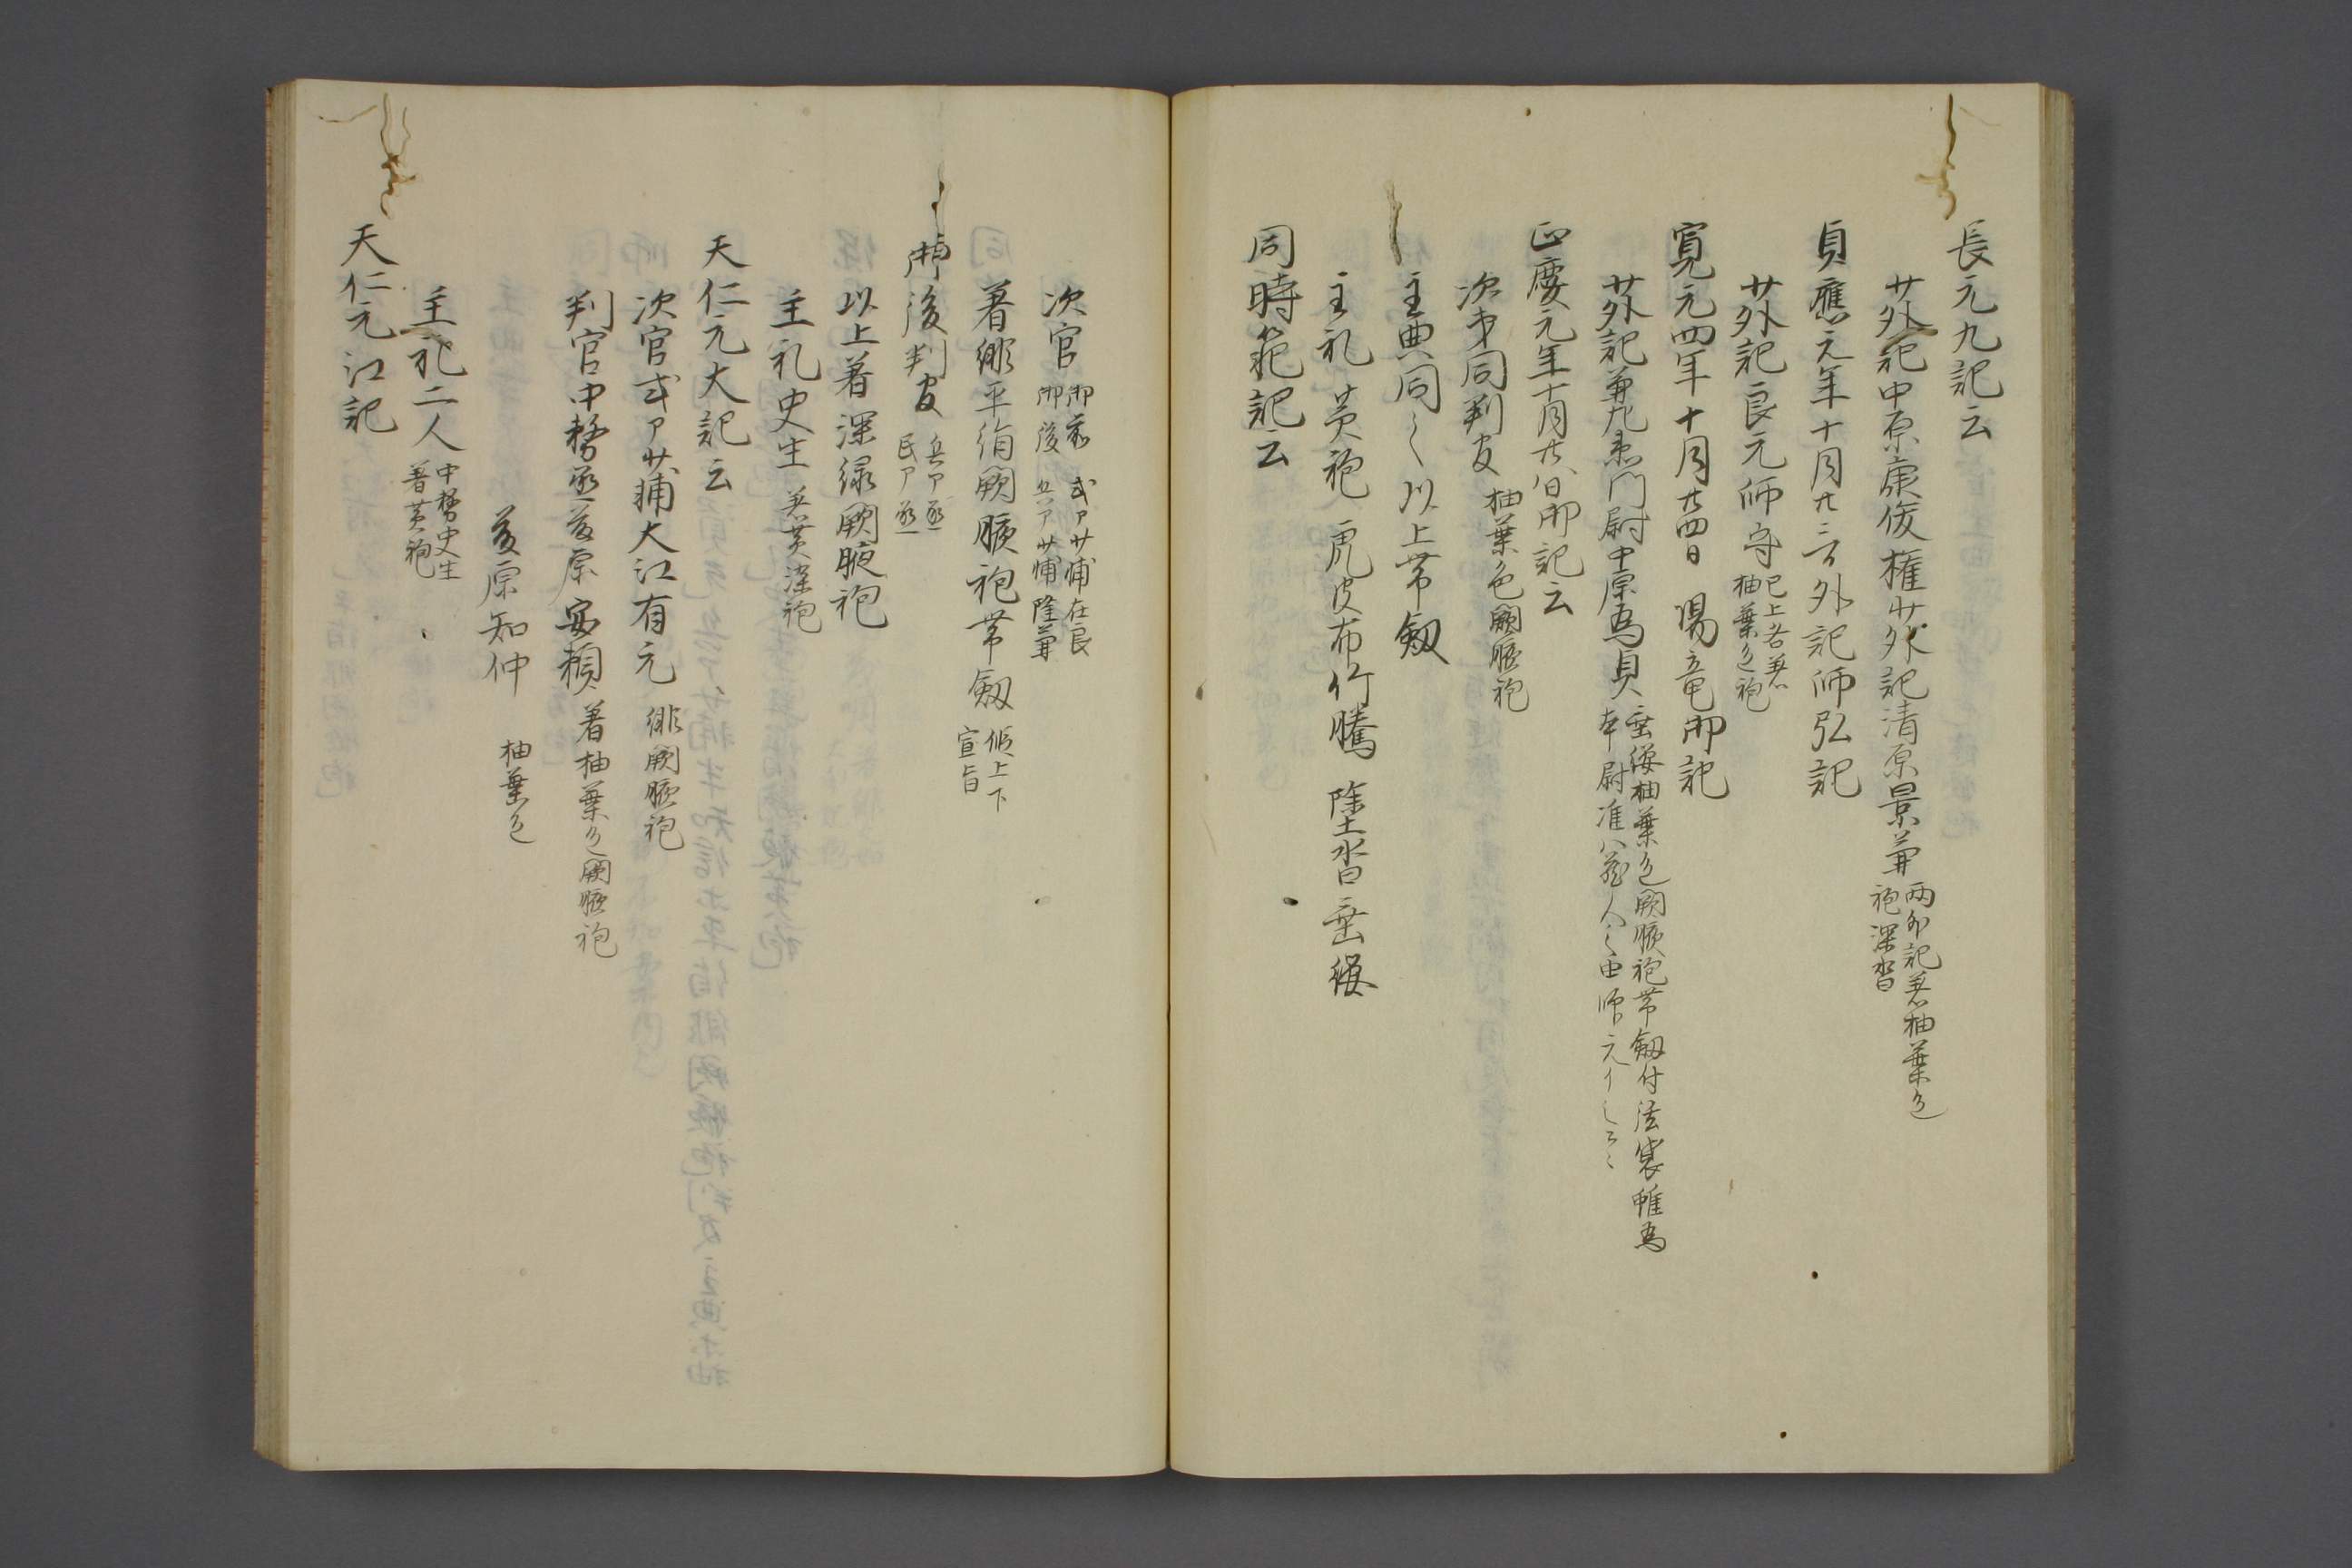 長元九記云
少外記中原康俊権少外記清原景兼 両外記着柚葉色
袍深沓
貞應元年十月廿三日外記師弘記
少外記良元師守 已上各着
柚葉色袍
寛元四年十月廿四日 陽竜御記
少外記兼左衛門尉中原為貞 垂纓柚葉色闕腋袍帯釼付法褰帷為
本尉准八蔵人之由師元
正慶元年十月廿八日御記云
次第同判官 柚葉色闕腋袍
主典同之以上帯釼
主礼 黄袍 虎皮布行騰 隨沓 垂纓
同時範記云
次官 御前 式ア少輔在良
御後 兵ア少輔隆兼
着緋平絹闕腋袍帯釼 傾上下
宣旨
御後判官 兵ア丞
民ア丞
以上着深緑闕腋袍
主礼史生 着黄深袍
天仁元大記云
次官式ア少輔大江有元 緋闕腋袍
判官中務丞藤原実頼 着柚葉色闕腋袍
藤原知仲 柚葉色
主礼二人 中務史生
着黄袍
天仁元江記